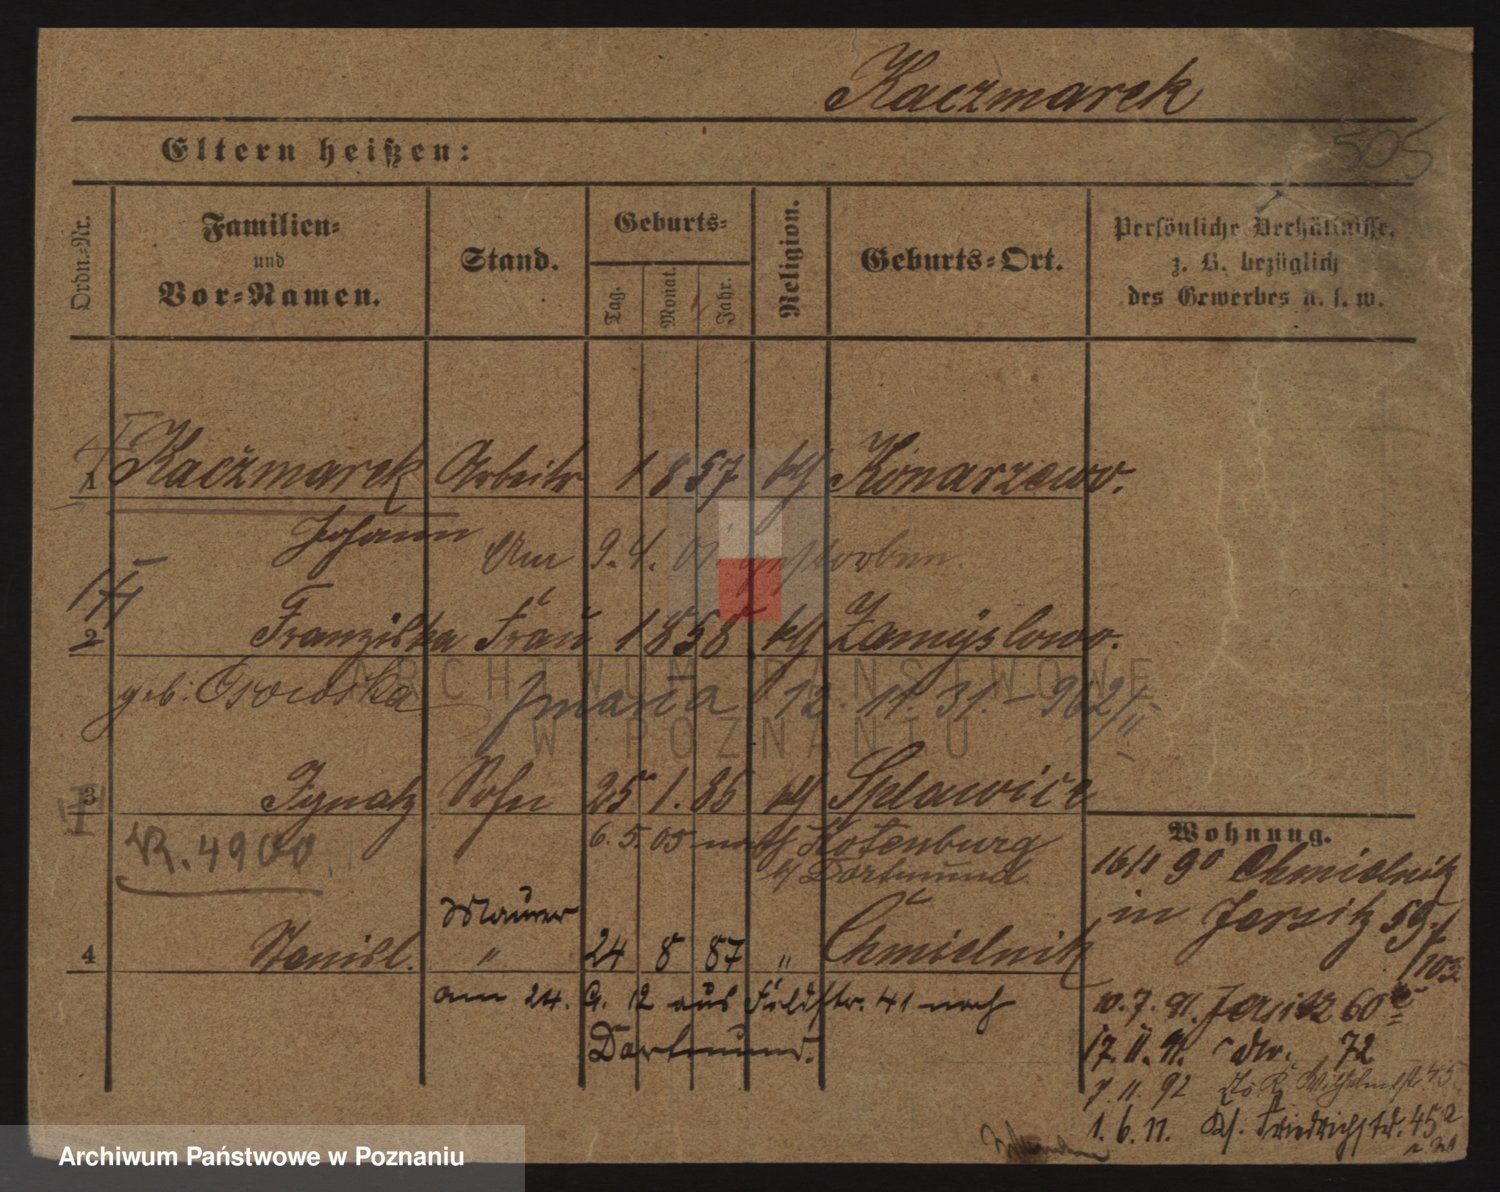 Kaczmarek
505
Eltern heißen:
Ordn.-Nr.
Familien-
und
Vor-Namen.
Stand.
Geburts-
Tag.
Monat.
Jahr.
Religion.
Geburts-Ort.
Persönliche Verhältnisse,
z. B. bezüglich
des Gewerbes u. s. w.
1 Kaczmarek Arbeiter 1857 kth Konarzewo.
Johann
Am 9.4.01. gestorben.
2 Franziska Frau 1858 kth Zamyslowo.
geb. Osowska
zmarła 12.11.31. - 962/II
3 Ignatz Sohn 25 1. 85 kth Splawice
R. 4900
6.5.05 nach Rotenburg
b/ Dortmund
Maurer
4 Stanisl. " 24 8 87 " Chmielnik
am 24. 9. 12 aus Feldstr. 41 nach
Dortmund.
Wohnung.
16/11 90 Chmielnik
in Jersitz 59.
/103
10.7.91. Jersitz 60
17.11.91. dto. 72
7.11.92 Wilhelmstr. 45
1.6.11. Friedrichstr. 45a
ARCHIWUM PAŃSTWOWE
W POZNANIU
Archiwum Państwowe w Poznaniu